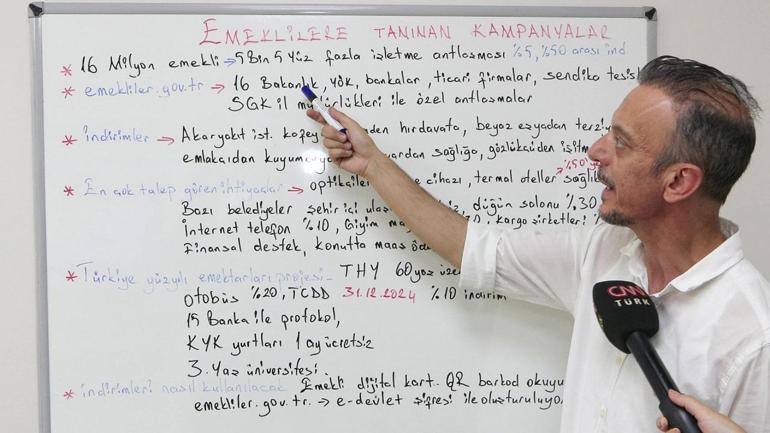 EMEKLİLERE TANINAN KAMPANYALAR
* 16 Milyon emekli → 5 Bin 5 yüz fazla işletme antlaşması %5, %50 arası ind.
* emekliler.gov.tr → 16 Bakanlık, YÖK, bankalar, ticari firmalar, sendika
SGK il ile özel antlaşmalar
* indirimler → Akaryakıt ist. hırdavata, beyaz eşyadan
emlakcıdan sağlığa, gözlükçüden
* En çok talep gören ihtiyaçlar → cihazı, termal oteller %50
Bazı belediyeler şehir içi düğün solonu %30
İnternet telefon %10, Giyim kargo şirketleri
Finansal destek, konutta maaş
* Türkiye yüzyılı emektarları projesi - THY 60 yaş
otobüs %20, TCDD 31.12.2024 %10 indirim
15 Banka ile protokol,
KYK yurtları 1 ay ücretsiz
3. Yaş üniversitesi.
* indirimler? nasıl kullanılacak Emekli dijital kart. QR barkod
emekliler.gov.tr. → e-devlet şifresi ile oluşturuluyor
CNN
TÜRK